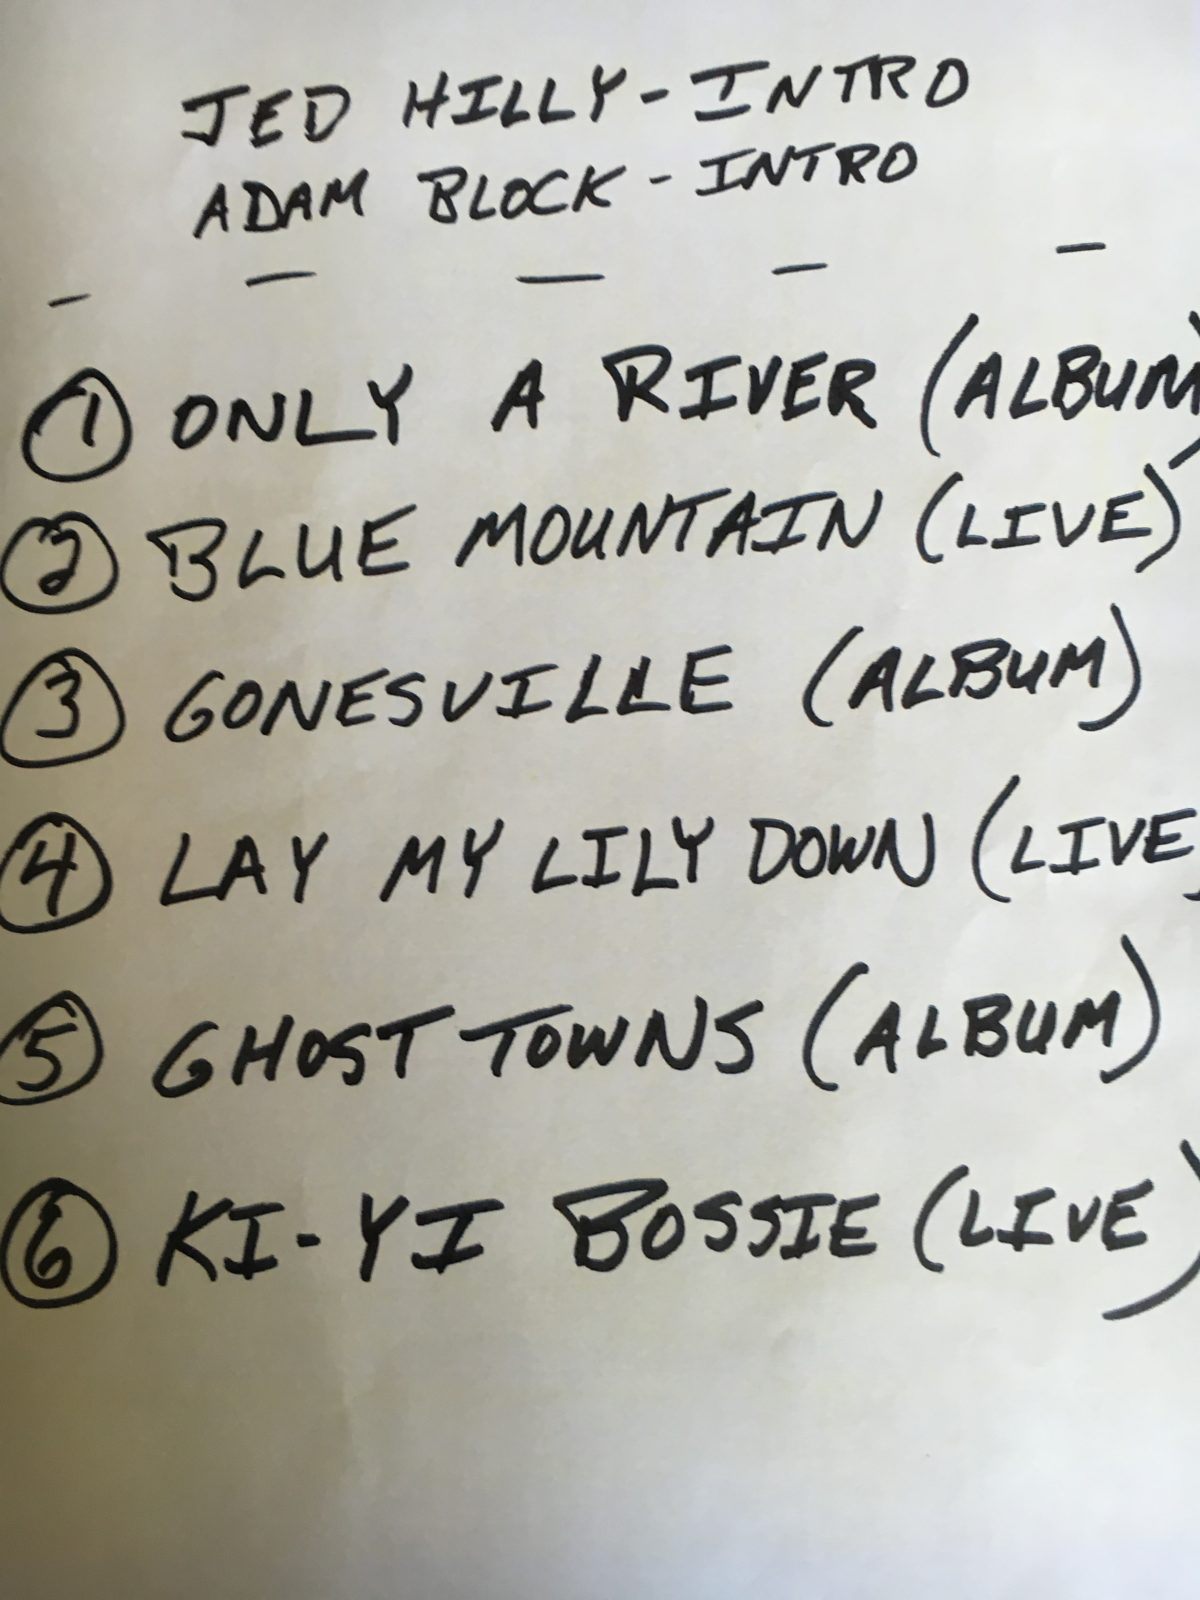 JED HILLY - INTRO
ADAM BLOCK - INTRO
— — — — —
1 ONLY A RIVER (ALBUM)
2 BLUE MOUNTAIN (LIVE)
3 GONESVILLE (ALBUM)
4 LAY MY LILY DOWN (LIVE)
5 GHOST TOWNS (ALBUM)
6 KI-YI BOSSIE (LIVE)